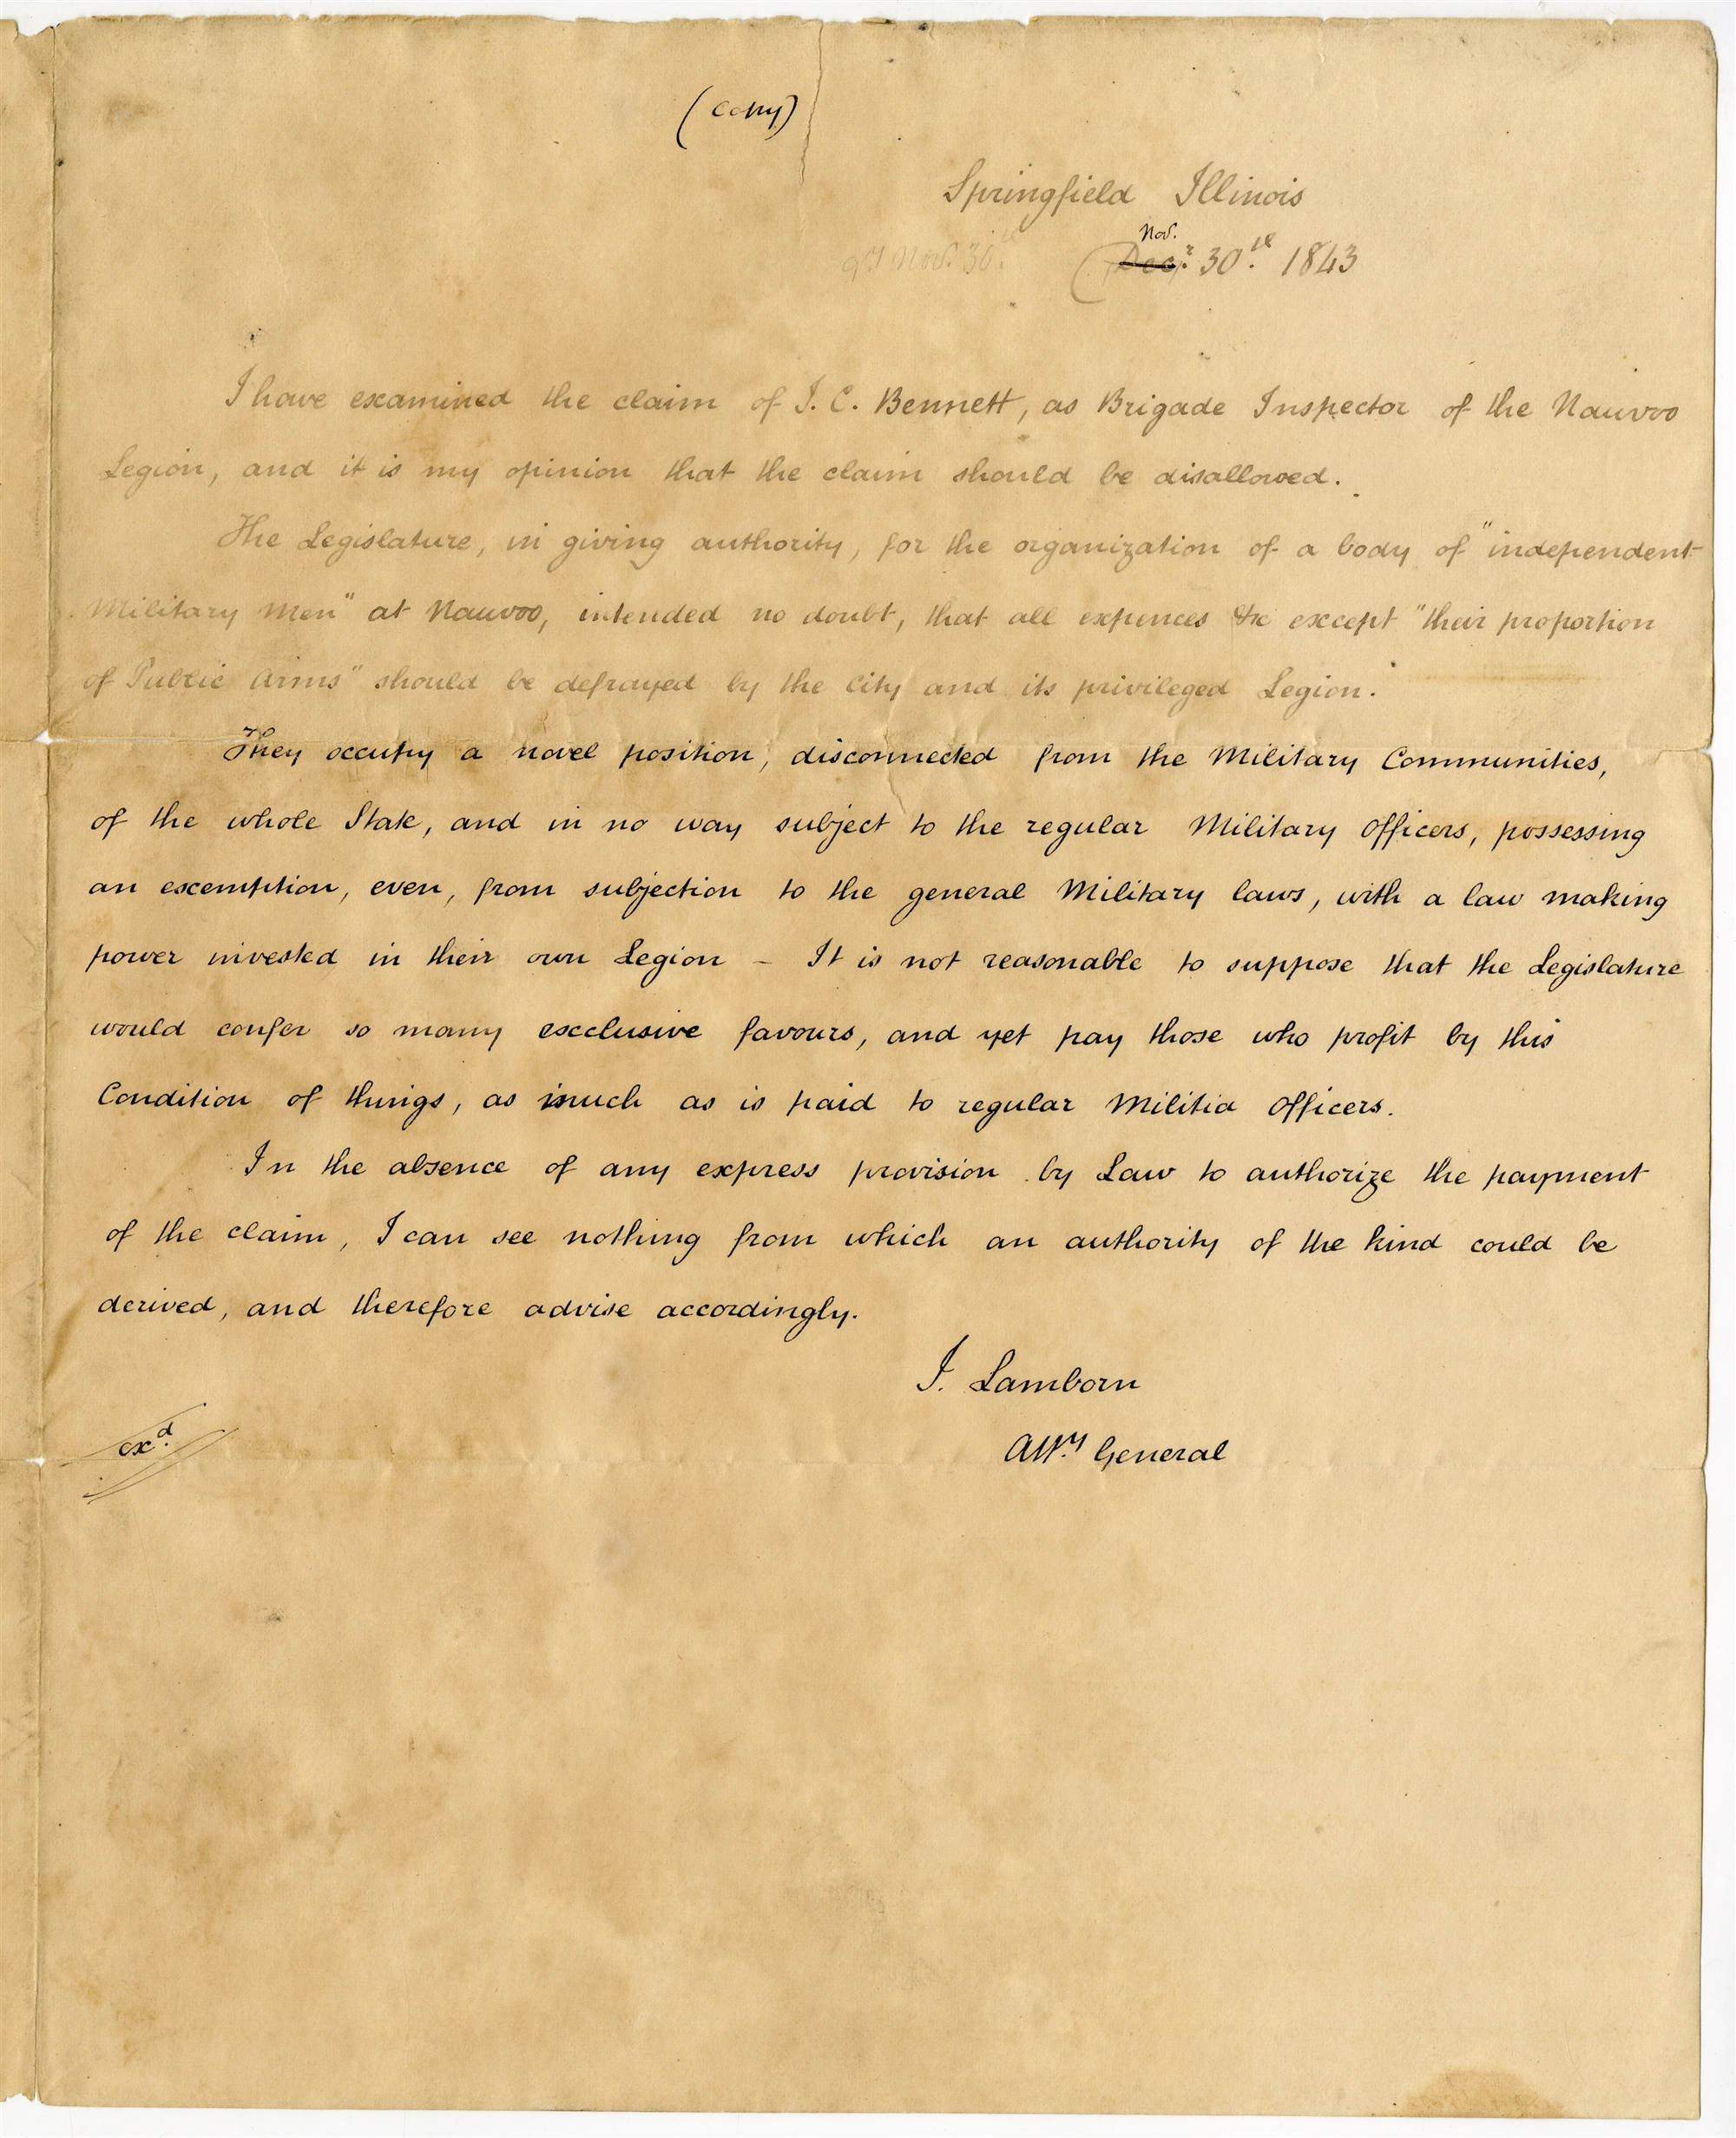 (copy)
Springfield Illinois
Nov.
Nov. 30. (Decr. 30.th 1843
I have examined the claim of J. C. Bennett, as Brigade Inspector of the Nauvoo
Legion, and it is my opinion that the claim should be disallowed.
The Legislature, in giving authority, for the organization of a body of "independent
Military Men" at Nauvoo, intended no doubt, that all expences &c except "their proportion
of Public Arms" should be defrayed by the City and its privileged Legion.
They occupy a novel position, disconnected from the Military Communities,
of the whole State, and in no way subject to the regular Military Officers, possessing
an excemption, even, from subjection to the general Military laws, with a law making
power invested in their own Legion – It is not reasonable to suppose that the Legislature
would confer so many excclusive favours, and yet pay those who profit by this
Condition of things, as much as is paid to regular Militia Officers.
In the absence of any express provision by Law to authorize the payment
of the claim, I can see nothing from which an authority of the kind could be
derived, and therefore advise accordingly.
J. Lamborn
exd.
Atty. General